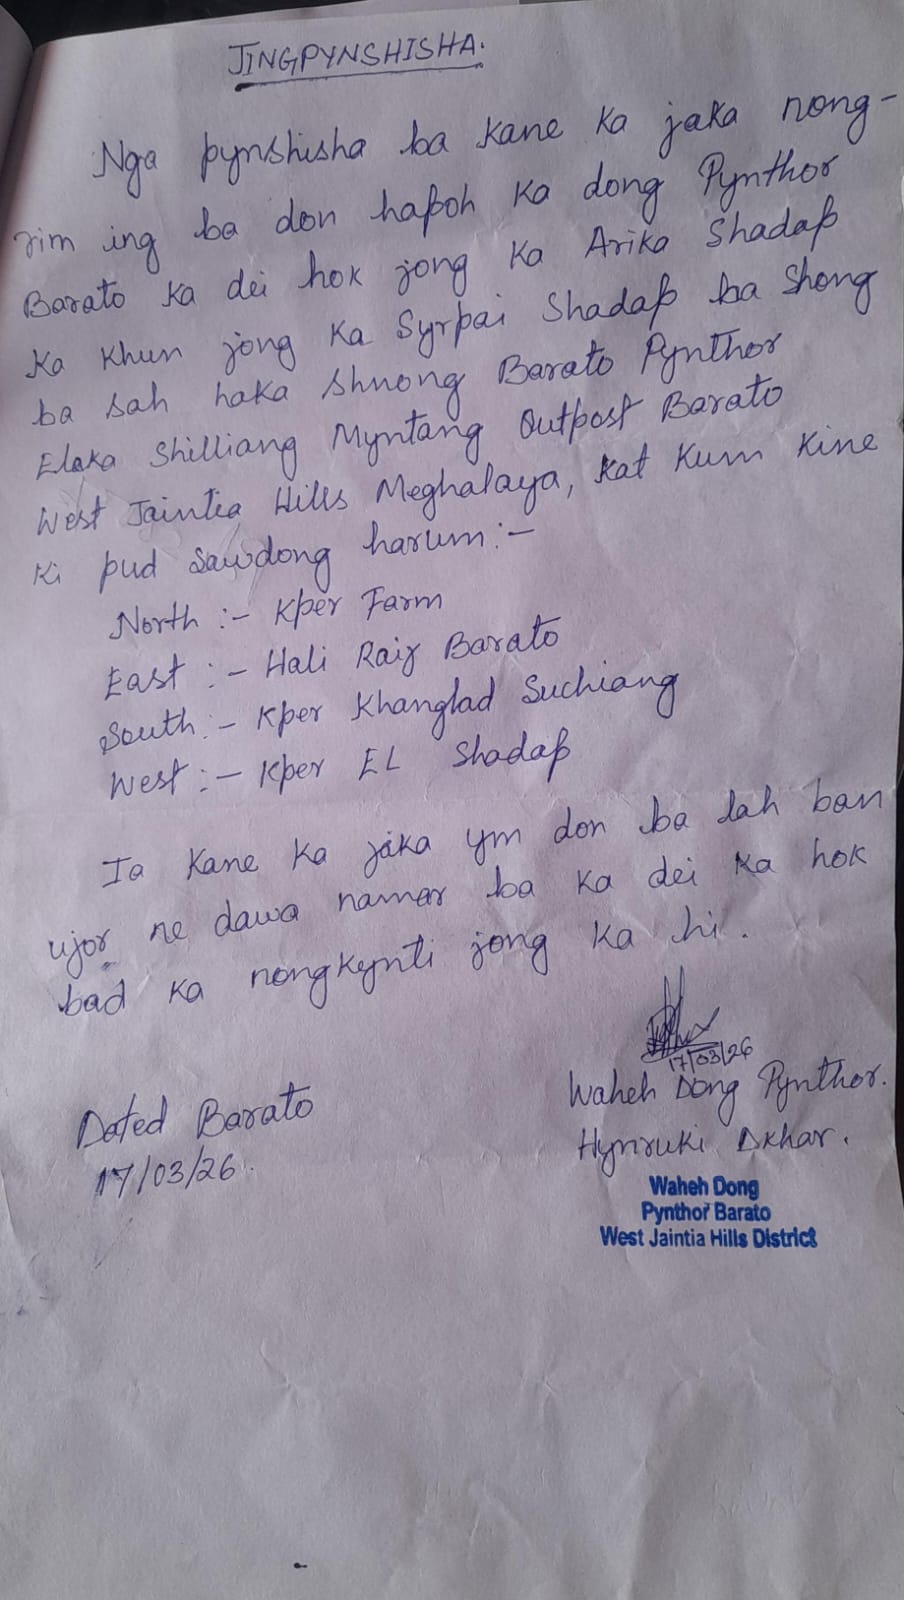 JINGPYNSHISHA.
Nga pynshisha ba kane ka jaka nong-
rim ing ba don hapoh ka dong Pynthor
Barato ka dei hok jong ka Arika Shadap
ka khun jong ka Syrpai Shadap ba shong
ba sah haka shnong Barato Pynthor
Elaka Shilliang Myntang Outpost Barato
West Jaintia Hills Meghalaya, kat kum kine
ki pud sawdong harum:-
North :- Kper Farm
East :- Hali Raij Barato
South :- Kper Khanglad Suchiang
West :- Kper EL Shadap
Ia kane ka jaka ym don ba lah ban
ujor ne dawa namar ba ka dei ka hok
bad ka nongkynti jong ka hi.
17/03/26
Waheh Dong Pynthor.
Hynruki Dkhar.
Dated Barato
17/03/26.
Waheh Dong
Pynthor Barato
West Jaintia Hills District